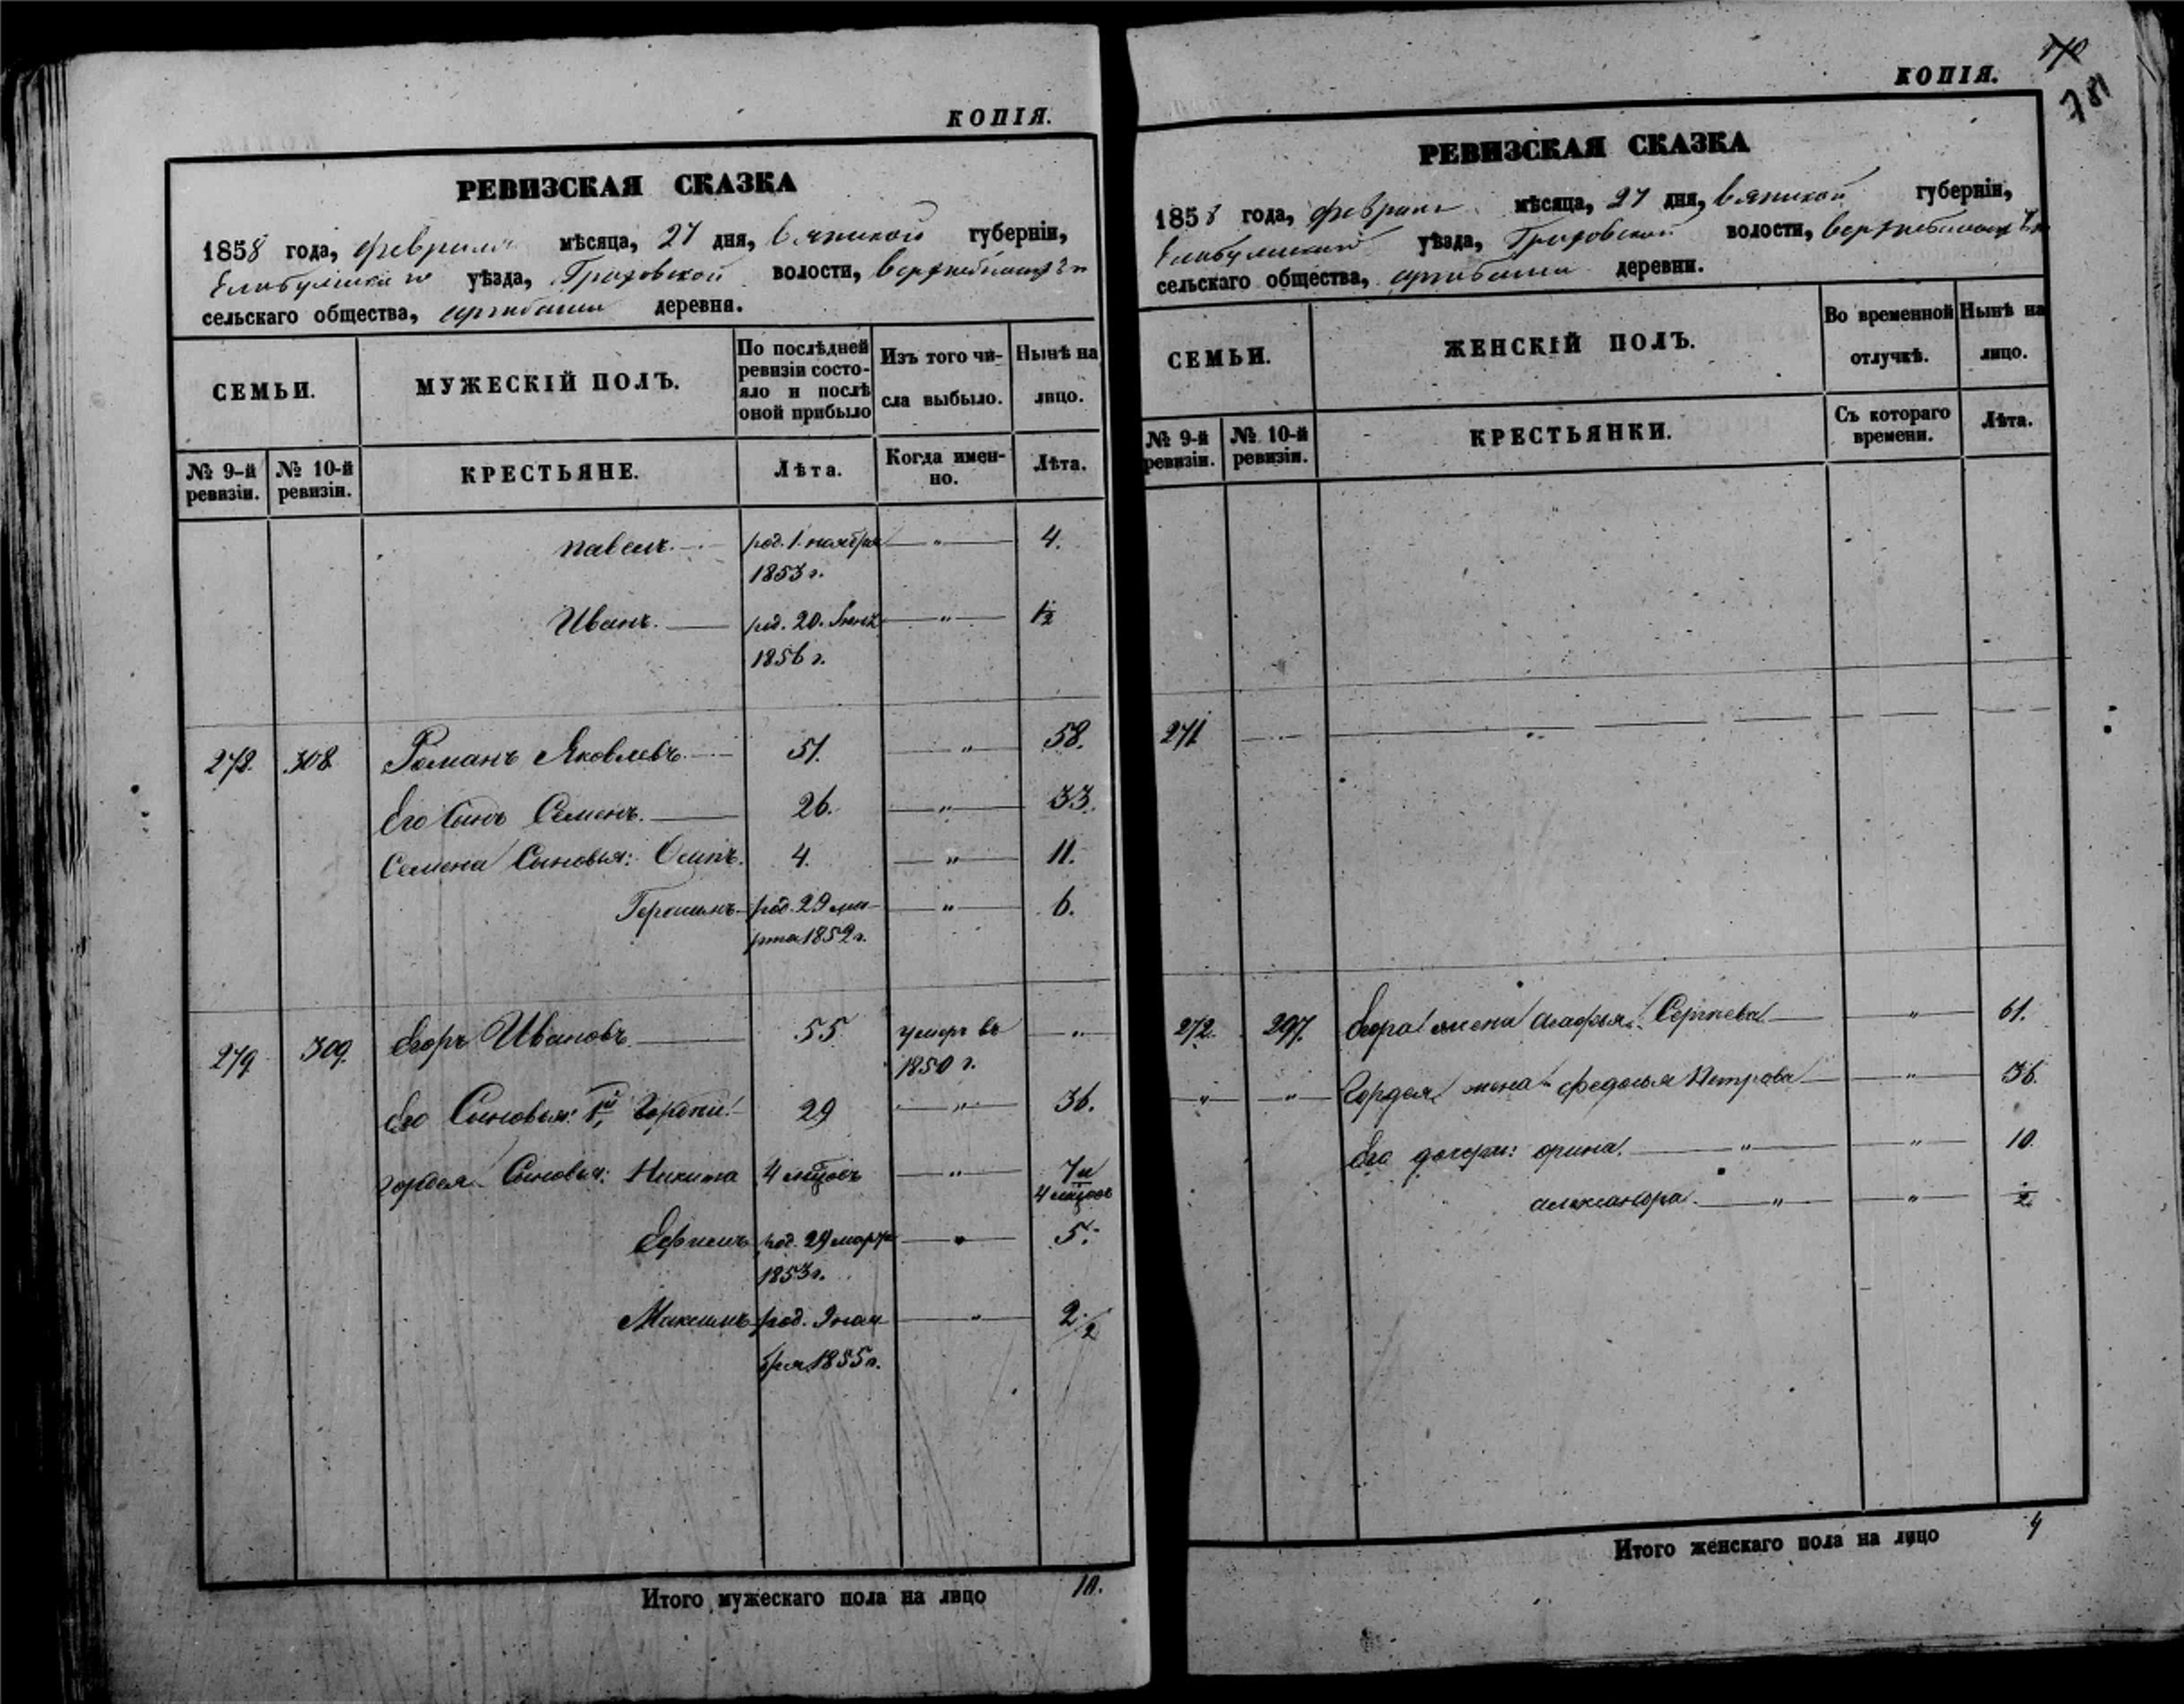 КОПІЯ.
РЕВИЗСКАЯ СКАЗКА
1858 года, февраля мѣсяца, 27 дня, Вятской губерніи,
Елабужскаго уѣзда, Граховской волости,
сельскаго общества, деревня.
СЕМЬИ.
МУЖЕСКІЙ ПОЛЪ.
По послѣдней
ревизіи состо-
яло и послѣ
оной прибыло
Изъ того чи-
сла выбыло.
Нынѣ на
лицо.
№ 9-й
ревизіи.
№ 10-й
ревизіи.
КРЕСТЬЯНЕ.
Лѣта.
Когда имен-
но.
Лѣта.
Павелъ. род. 1. ноября — „ — 4.
1853 г.
Иванъ. — род. 20. — „ — 1½
1856 г.
278. 308. Романъ Яковлевъ. 51. — „ — 58.
Его сынъ Семенъ. — 26. — „ — 33.
Семена Сыновья: Осипъ. 4. — „ — 11.
Герасимъ род. 29 ма- — „ — 6.
рта 1852 г.
279 309. Егоръ Ивановъ — 55 умеръ въ „
1850 г.
Его Сыновья: 1й Гордѣй 29 — „ — 36.
Гордея Сыновья: Никита 4 мѣцовъ — „ — 7 и
4 мѣцовъ
Ефимъ род. 29 марта — „ — 5.
1853 г.
Максимъ род. 9 ноя- — „ — 2½
бря 1855 г.
Итого мужескаго пола на лицо 10.
КОПІЯ.
781
РЕВИЗСКАЯ СКАЗКА
1858 года, февраля мѣсяца, 27 дня, Вятской губерніи,
Елабужскаго уѣзда, Граховской волости,
сельскаго общества, деревни.
СЕМЬИ.
ЖЕНСКІЙ ПОЛЪ.
Во временной
отлучкѣ.
Нынѣ на
лицо.
№ 9-й
ревизіи.
№ 10-й
ревизіи.
КРЕСТЬЯНКИ.
Съ котораго
времени.
Лѣта.
271
272. 297. Егора жена Агафья Сергѣева — „ — 61.
„ „ Гордея жена Федосья Петрова — „ — 36.
Его дочери: Орина. — „ — „ — 10.
Александра. — „ — „ — ½
Итого женскаго пола на лицо 4